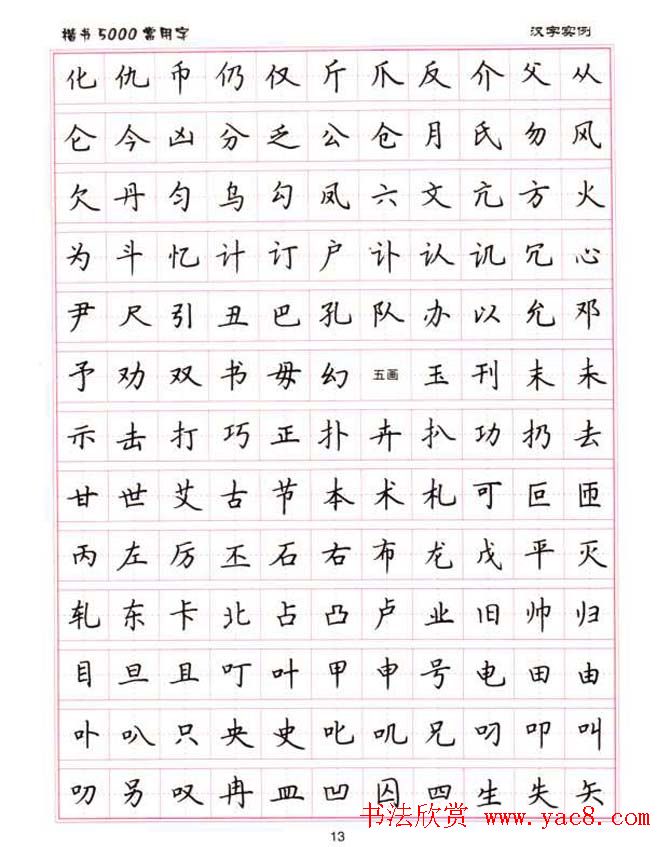 楷书5000常用字 汉字实例
化 仇 币 仍 仅 斤 爪 反 介 父 从
仑 今 凶 分 乏 公 仓 月 氏 勿 风
欠 丹 匀 乌 勾 凤 六 文 亢 方 火
为 斗 忆 计 订 户 讣 认 讥 冗 心
尹 尺 引 丑 巴 孔 队 办 以 允 邓
予 劝 双 书 毋 幻 五画 玉 刊 末 未
示 击 打 巧 正 扑 卉 扒 功 扔 去
甘 世 艾 古 节 本 术 札 可 叵 匝
丙 左 厉 丕 石 右 布 龙 戊 平 灭
轧 东 卡 北 占 凸 卢 业 旧 帅 归
目 旦 且 叮 叶 甲 申 号 电 田 由
卟 叭 只 央 史 叱 叽 兄 叼 叩 叫
叨 另 叹 冉 皿 凹 囚 四 生 失 矢
书法欣赏 www.yac8.com
13